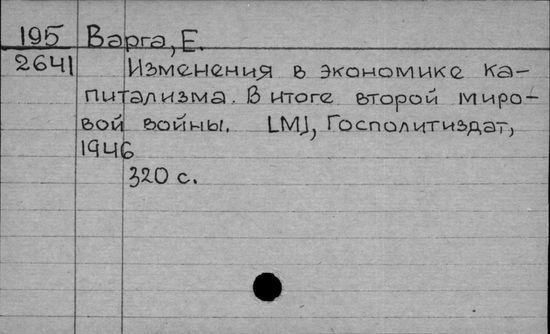 195 Варга, Е.
2641 Изменения в экономике ка-
питализма. В итоге второй миро-
вой войны. [М], Госполитиздат,
1946
320 с.